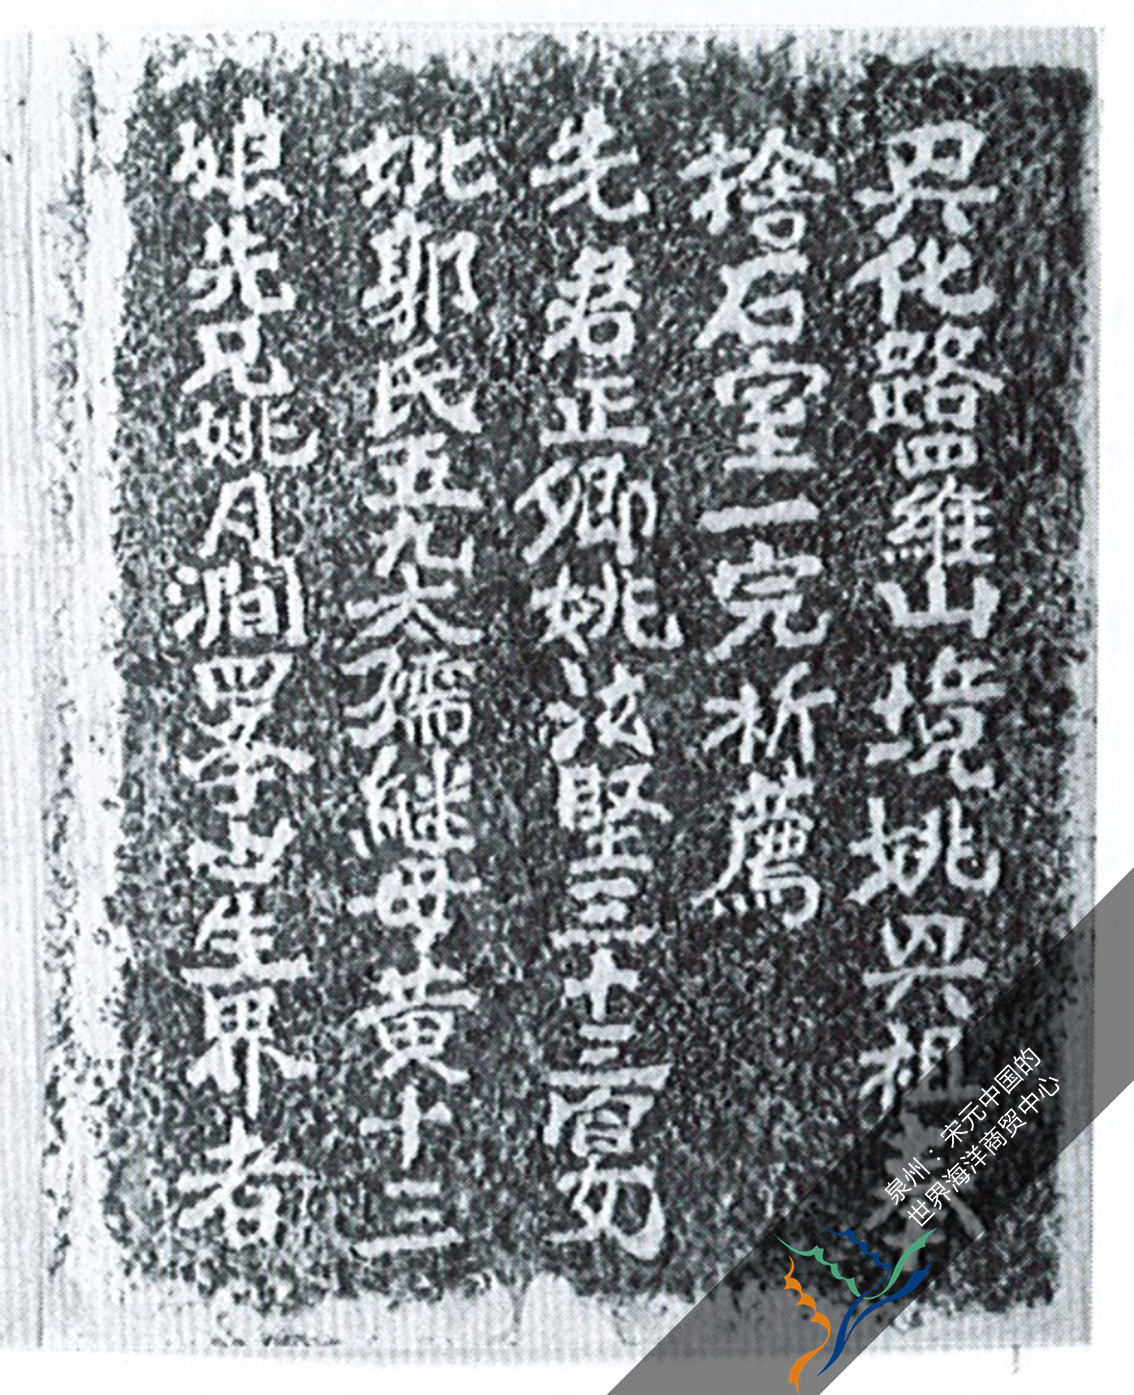 興化路羅山境姚興祖奉
捨石室一完祈薦
先君正卿姚汝堅三十三宴
妣郭氏五九太孺繼母黃十三
娘先兄姚月澗四學世生界者
泉州：宋元中国的
世界海洋商贸中心